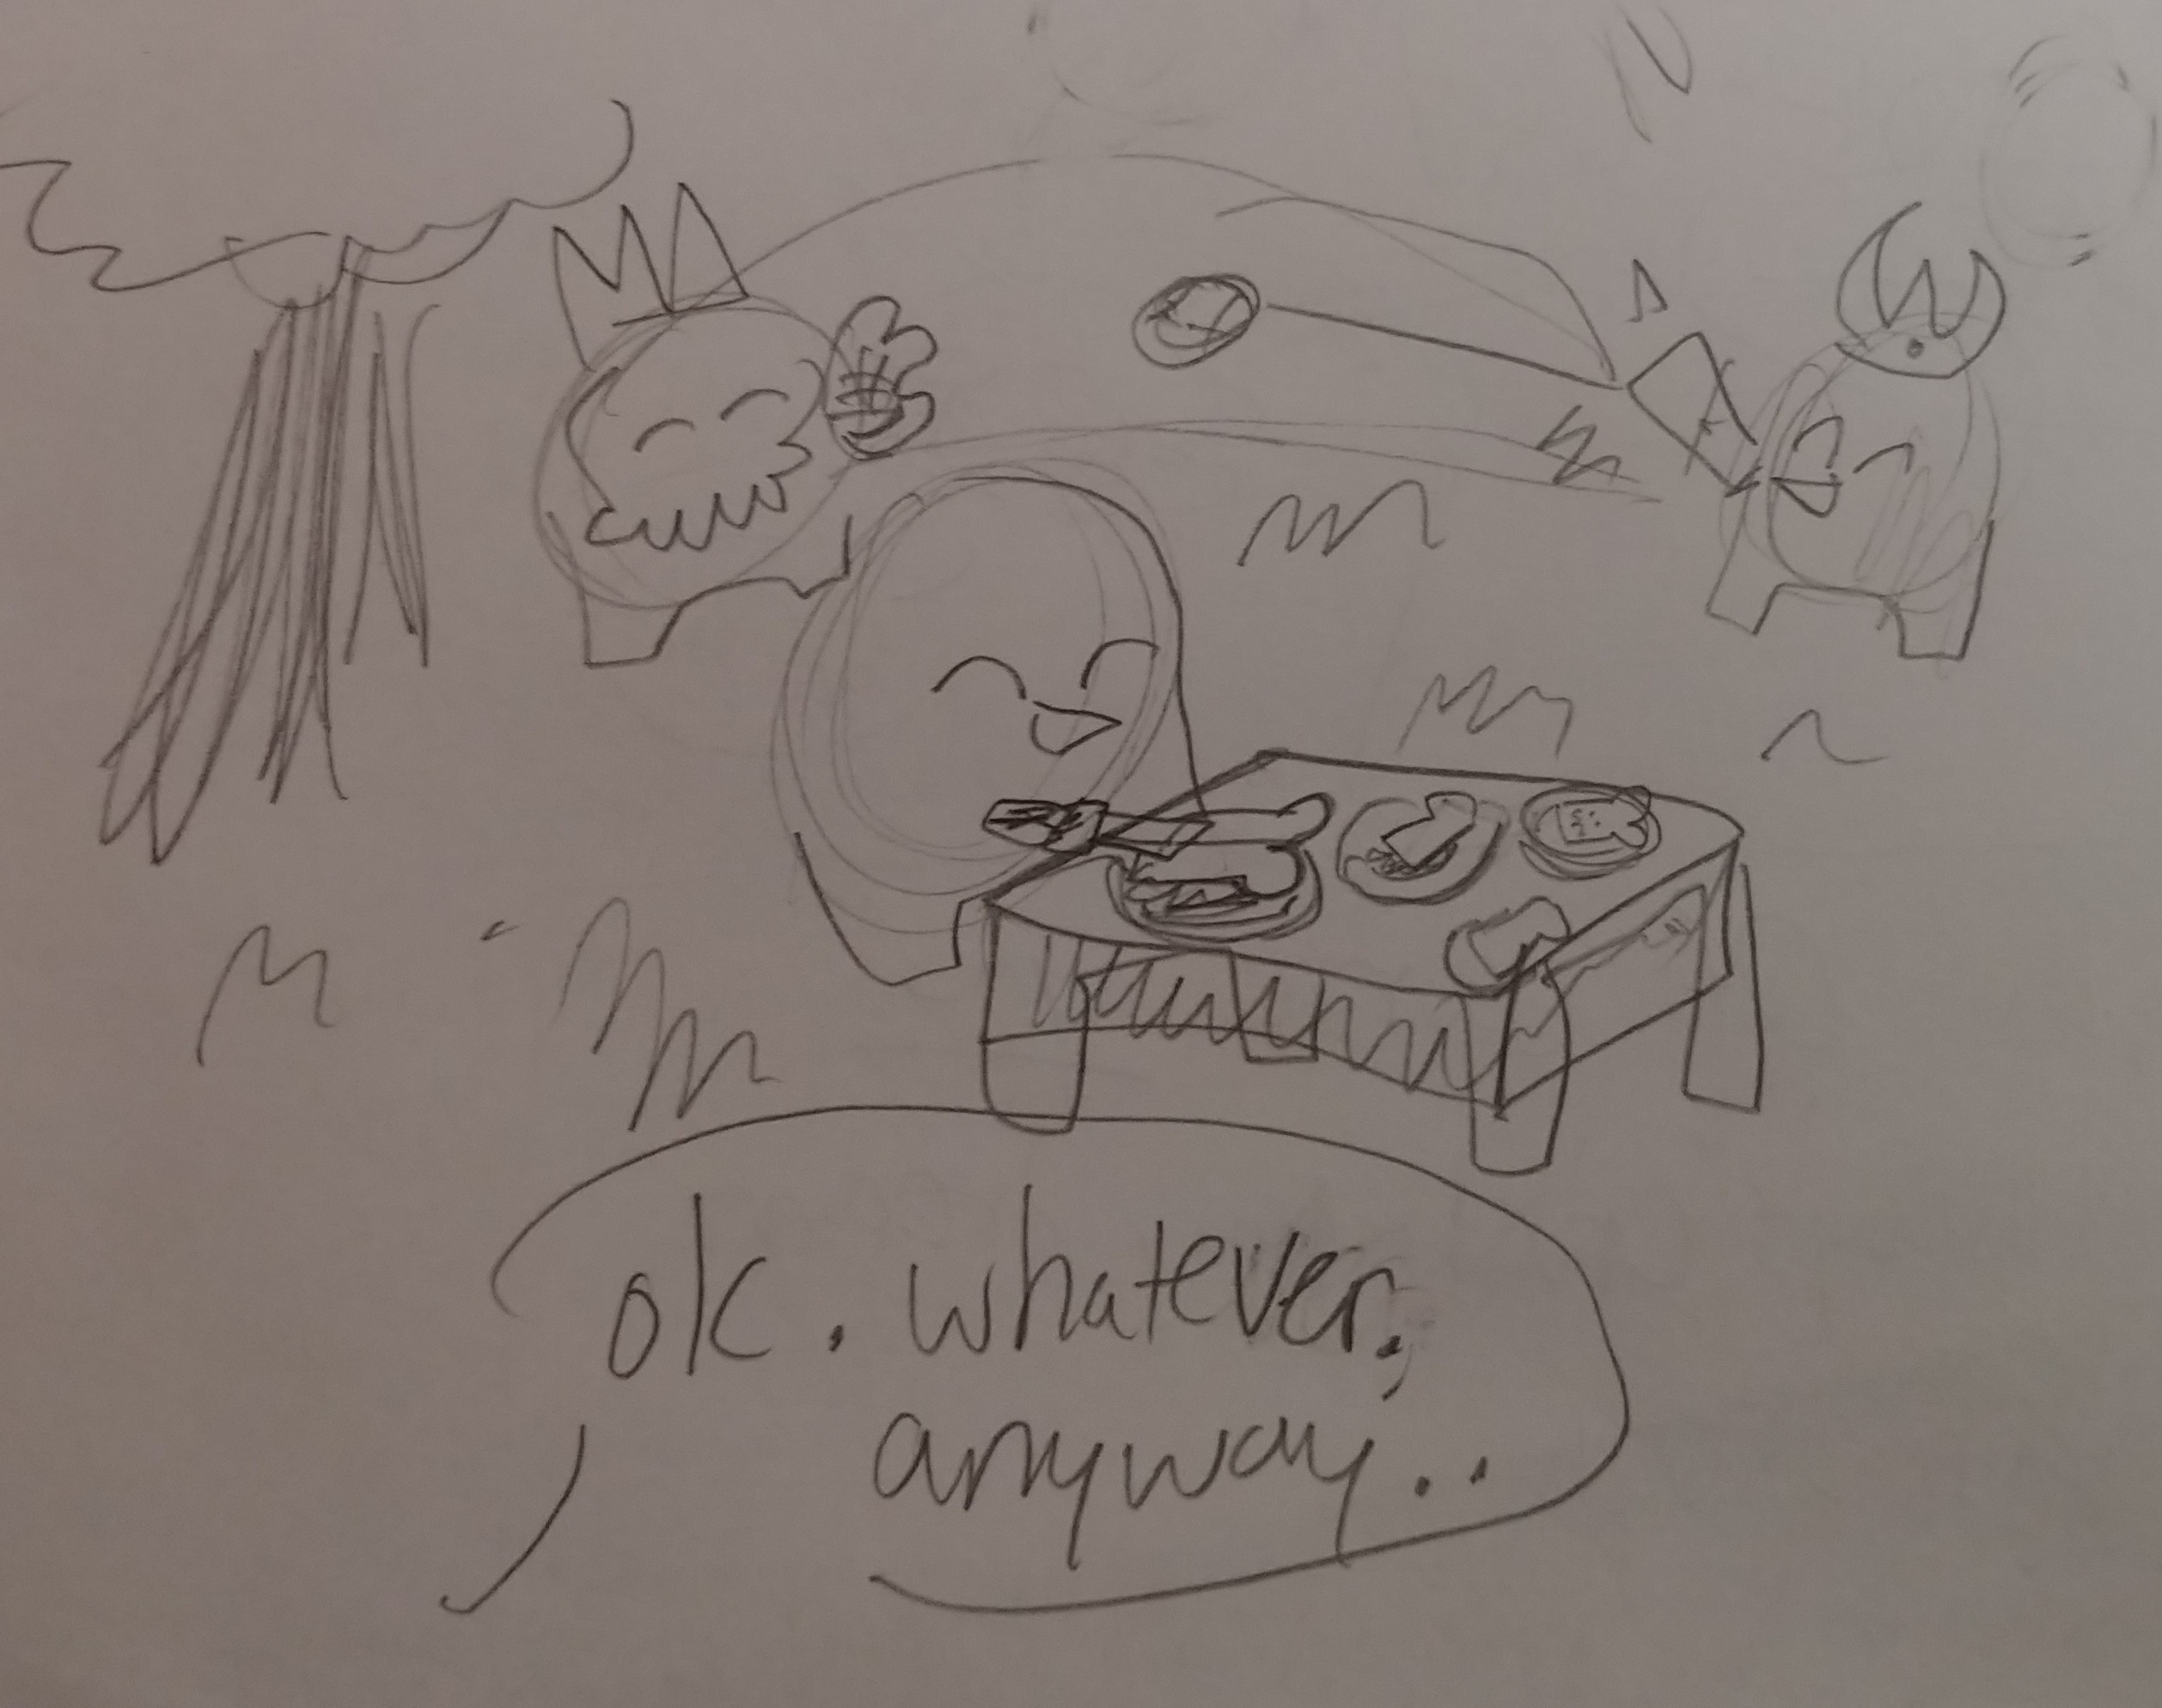 ok. whatever,
anyway..